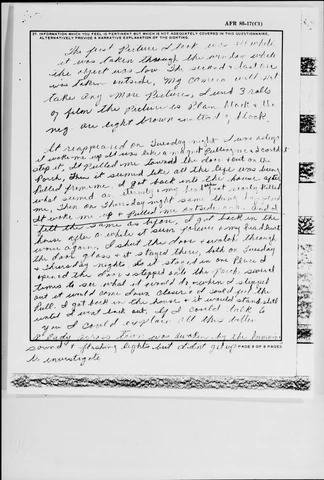 AFR 80-17(C1)
27. INFORMATION WHICH YOU FEEL IS PERTINENT BUT WHICH IS NOT ADEQUATELY COVERED IN THIS QUESTIONNAIRE, ALTERNATIVELY PROVIDE A NARRATIVE EXPLANATION OF THE SIGHTING.
The first Picture I took was while
it was taken through the window when
the object was low. The second last one
was taken outside. My camera will not
take any more Pictures. I used 3 rolls
of film the Picture is Plain black & the
neg are light brown instead of black.
It reappeared on Tuesday night I was asleep
it woke me up it was like a magnet Pulling me & couldn't
stop it, It Pulled me toward the door & out on the
Porch, then it seemed like all the life was being
Pulled from me. I got back into the house after
what seemed a eternity & my head just nearly killed
me, Then on Thursday night same thing happened
It woke me up & Pulled me outside and I
felt the same as before, I got back in the
house after a while it seem forever & my head hurt
once again, I shut the door & watch through
the door glass & it stayed there, both on Tuesday
& Thursday nights it stood in one Place I
opened the door & stepped onto the Porch several
times to see what it would do & when I stepped
out it would come down closer & it would start the
Pull. I got back in the house & it would stand still
until I went back out. If I could talk to
you I could explain all this better
A lady across town was awaken by the humming
sound & flashing lights but didn't get up
to investigate
PAGE 8 OF 8 PAGES